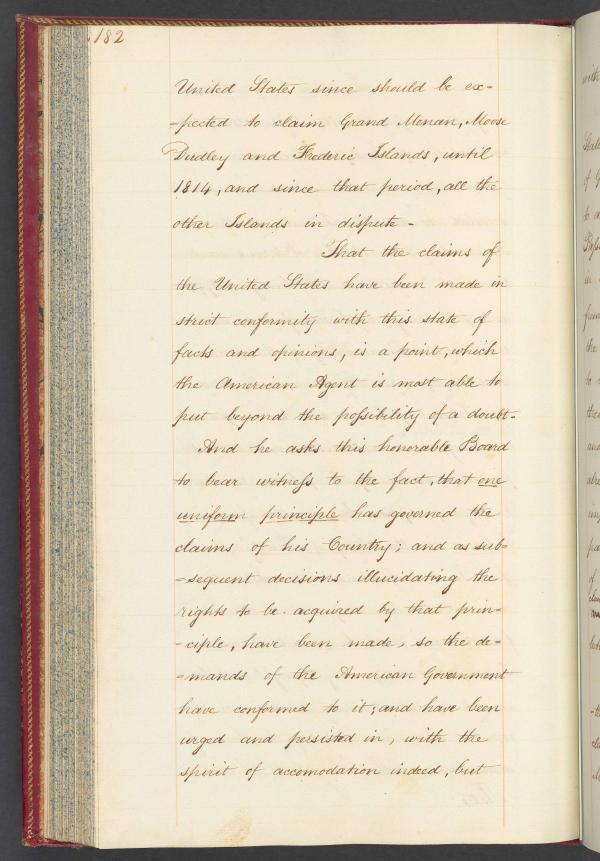 182
United States since should be ex-
-pected to claim Grand Menan, Moose
Dudley and Frederic Islands, until
1814, and since that period, all the
other Islands in dispute -
That the claims of
the United States have been made in
strict conformity with this state of
facts and opinions, is a point, which
the American Agent is most able to
put beyond the possibility of a doubt -
And he asks this honorable Board
to bear witness to the fact, that one
uniform principle has governed the
claims of his Country; and as sub=
=sequent decisions illucidating the
rights to be acquired by that prin-
-ciple, have been made, so the de-
-mands of the American Government
have conformed to it; and have been
urged and persisted in, with the
spirit of accomodation indeed, but